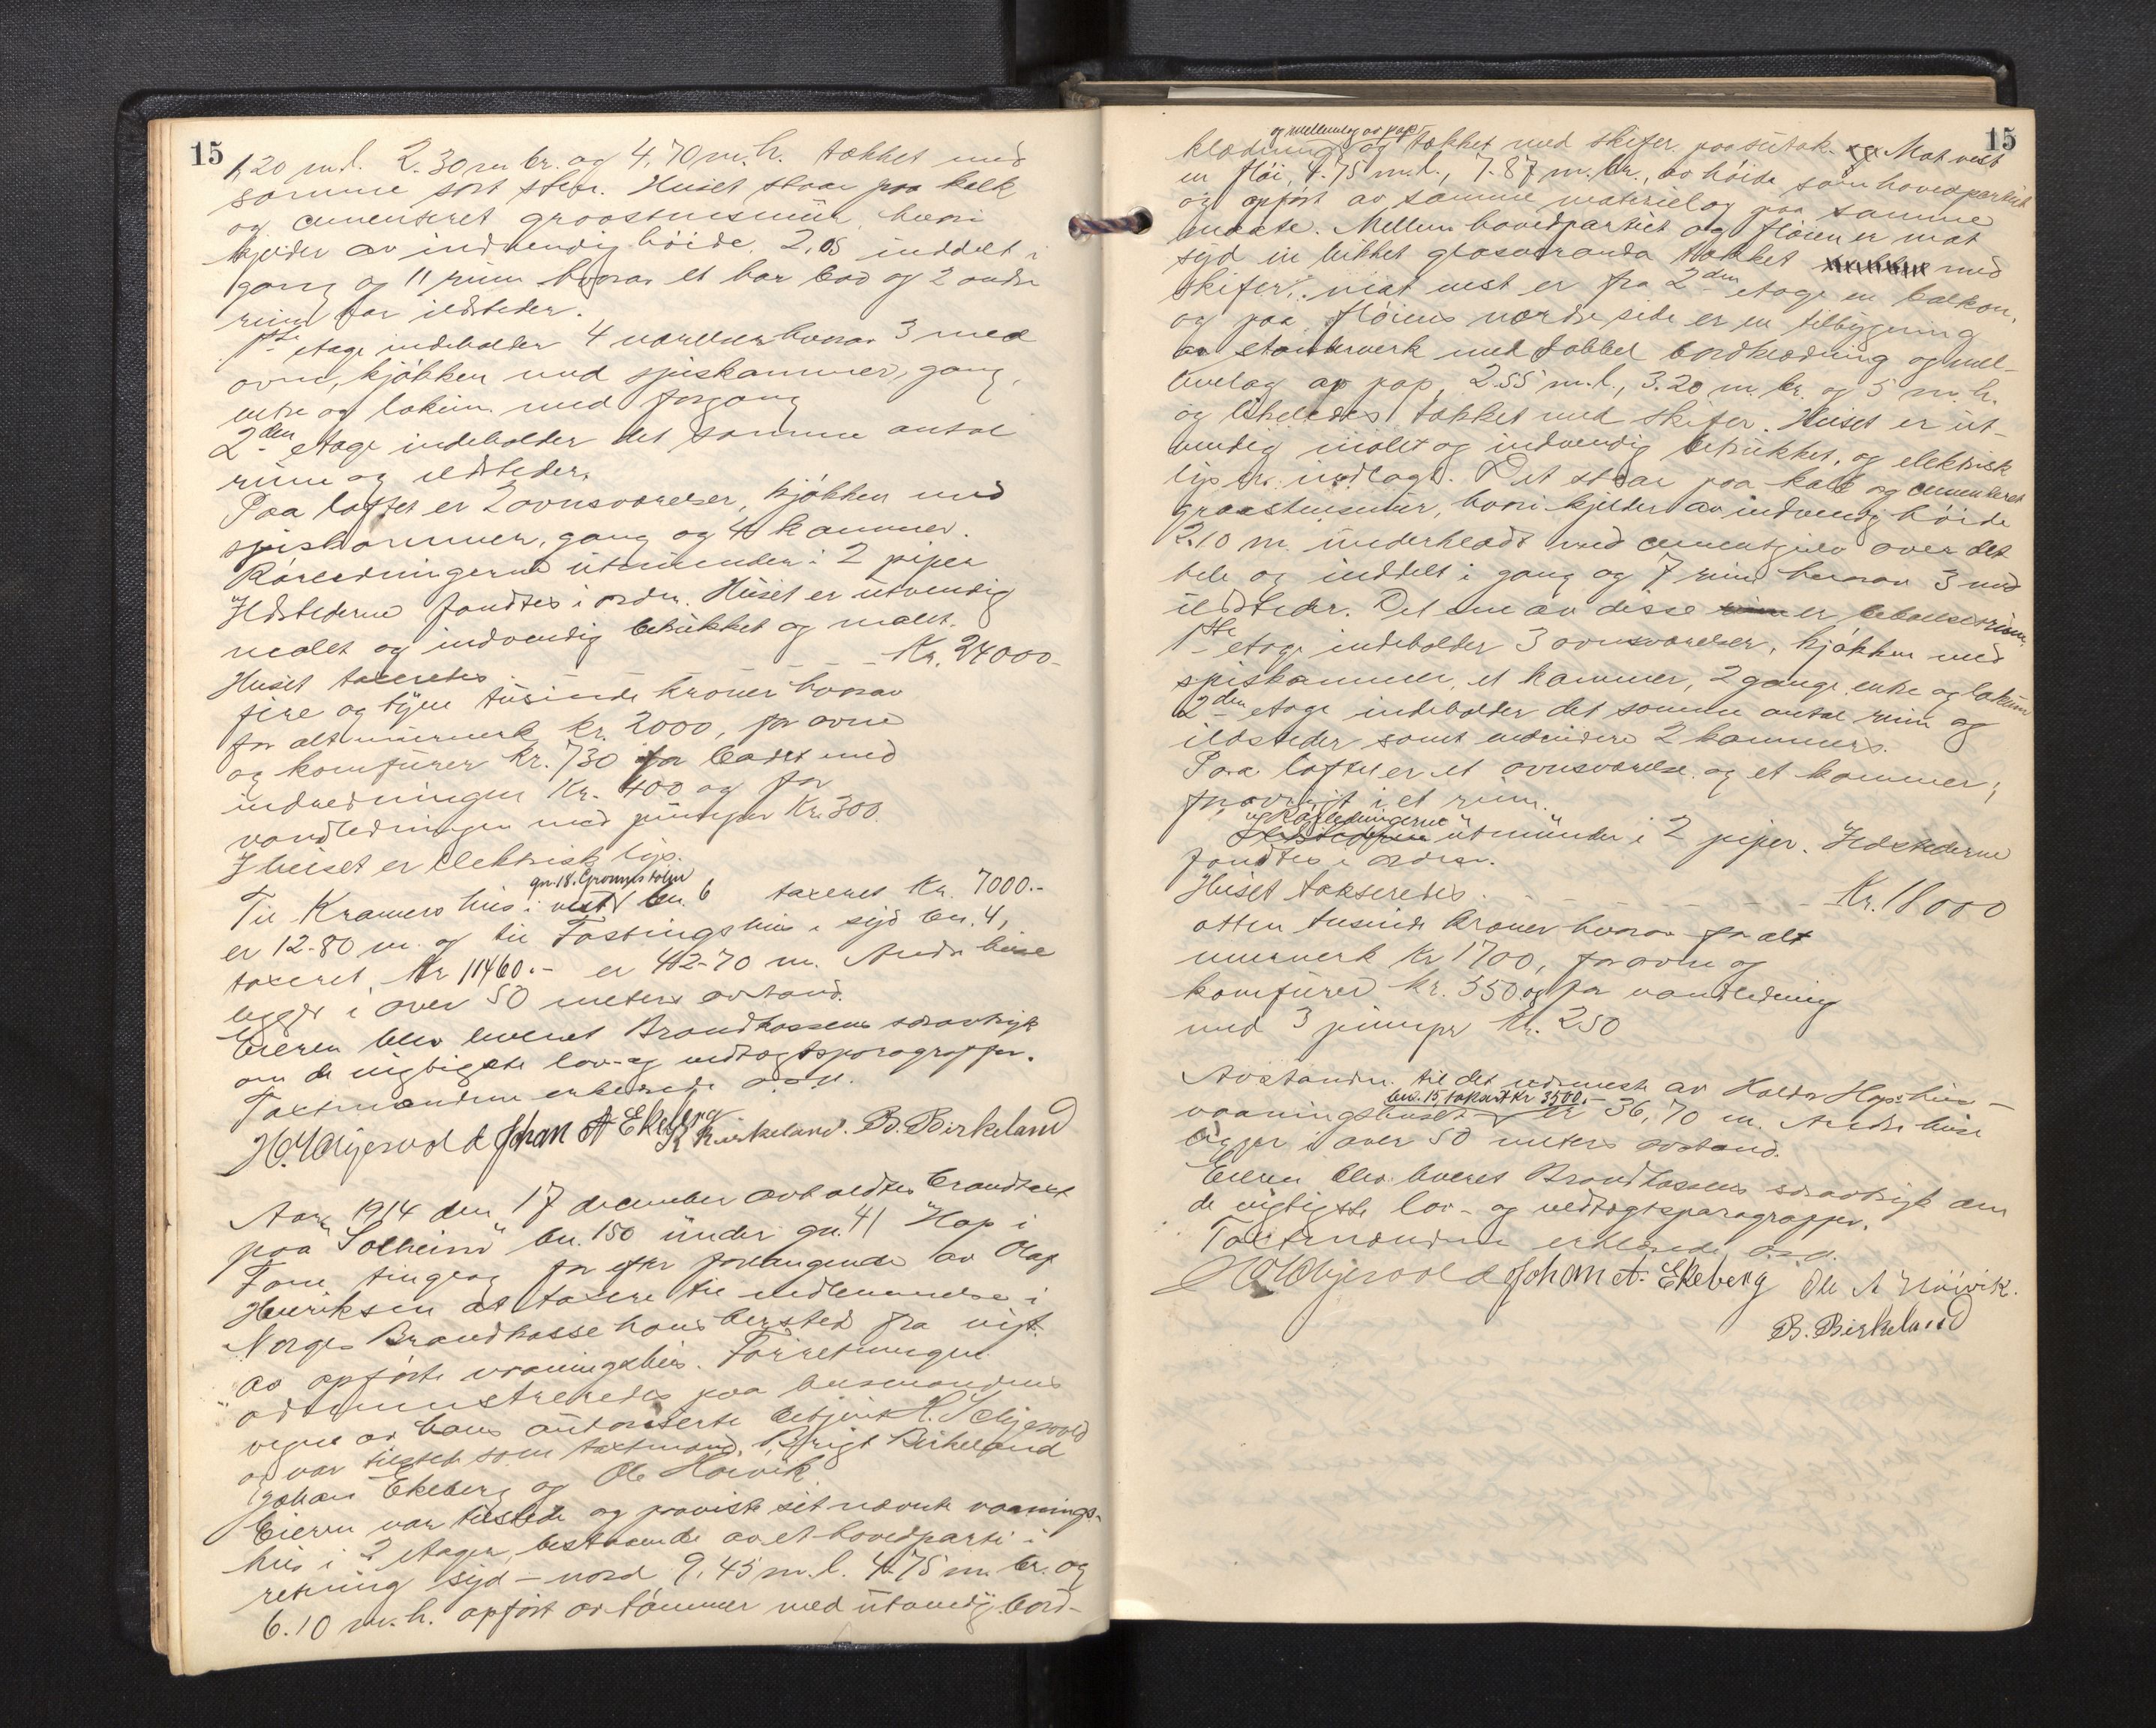 15
1,20 m.l. 2.30 m br. og 4,70 m.h. tækket med
samme sort sten. Huset staar paa kalk
og cementeret graastensmur, hvori
kjelder av indvendig höide 2,05 inddelt i
gang og 11 rum hvorav et har bad og 2 andre
rum har ildsteder.
1ste etage indeholder 4 værelser hvorav 3 med
ovne, kjökken med spiskammer, gang,
entre og lokum med forgang
2den etage indeholder det samme antal
rum og ildsteder.
Paa loftet er 2 ovnsværelser, kjökken med
spiskammer, gang og 4 kammer.
Rörledningerne utmunder i 2 piper
Ildstederne fandtes i orden. Huset er utvendig
malet og indvendig betrukket og malet.
Huset taxeredes - - - - Kr. 24000-
fire og tyve tusinde kroner hvorav
for alt murverk kr. 2000, for ovne
og komfurer kr. 730 for badet med
indredningen Kr. 400 og for
vandledningen med pumper Kr. 300.
I huset er elektrisk lys.
gn. 18.
Til Kramers hus i vest bn. 6 taxeret Kr. 7000.-
er 12-80 m. og til Fastings hus i syd bn. 4,
taxeret Kr 11460.- er 42-70 m. Andre huse
ligger i over 50 meters avstand.
Eieren blev leveret Brandkassens særavtryk
om de vigtigste lov- og vedtægtsparagrapher.
Taxtmændene erklærede o.s.v.
H. Schjesvold Johan A Ekeberg K Birkeland. B. Birkeland
Aar 1914 den 17 december avholdtes brandtaxt
paa "Solheim" bn. 150 under gn. 41 Hop i
Fane tinglag for efter forlangende av Olaf
Henriksen at taxere til indlemmelse i
Norges Brandkasse hans bersted fra nyt
av opförte vaaningshus. Forretningen
administreredes paa lensmandens
vegne av hans autoriserte betjent H. Schjesvold
og var tilstede som taxtmænd, Brigt Birkeland
Johan Ekeberg og Ole Höivik
Eieren var tilstede og paaviste sit nævnte vaanings-
hus i 2 etager, bestaaende av et hovedparti i
retning syd - nord 9,45 m.l. 4.75 m. br. og
6.10 m.h. opfört av tömmer med utvendig bord-
15
og mellemlag av pap
klædning og tækket med skifer paa sutak. Mot vest
en flöi, 4.75 m.l., 7.87 m. br., av höide som hovedpartiet
og opfört av samme materiel og paa samme
maate. Mellem hovedpartiet og flöien er mot
syd en lukket glasveranda tækket med
skifer. mot vest er fra 2den etage en balkon,
og paa flöiens nordre side er en tilbygning
av standerverk med dobbel bordklædning og mel-
lemlag av pap, 2.55 m.l., 3.20 m. br. og 5 m.h.
og likeledes tækket med skifer. Huset er ut-
vendig malet og indvendig betrukket, og elektrisk
lys er indlagt. Det staar paa kalk og cementeret
graastensmur, hvori kjelder av indvendig höide
2.10 m. underklædt med cementgulv over det
hele og inddelt i gang og 7 rum hvorav 3 med
ildsteder. Det ene av disse er beboelsesrum
1ste etage indeholder 3 ovnsværelser, kjökken med
spiskammer, et kammer, 2 gange, entre og lokum
2den etage indeholder det samme antal rum og
ildsteder samt endvidere 2 kammers.
Paa loftet er et ovnsværelse og et kammer;
forövrigt i et rum.
Rörledningerne
utmunder i 2 piper. Ildstederne
fandtes i orden.
Huset takseredes - - - - - - Kr. 18000
atten tusinde kroner hvorav for alt
murverk Kr 1700, for ovne og
komfurer kr. 550 og for vandledning
med 3 pumper Kr. 250
Avstanden til det nærmeste av Haldor Hops hus -
bn. 15, takseret Kr 3500.-
vaaningshuset - er 36,70 m. Andre huse
ligger i over 50 meters avstand.
Eieren blev leveret Brandkassens særavtryk om
de vigtigste lov- og vedtægtsparagrapher.
Taxtmændene erklærede o.s.v.
H. Schjesvold Johan A. Ekeberg Ole A Höivik.
B. Birkeland